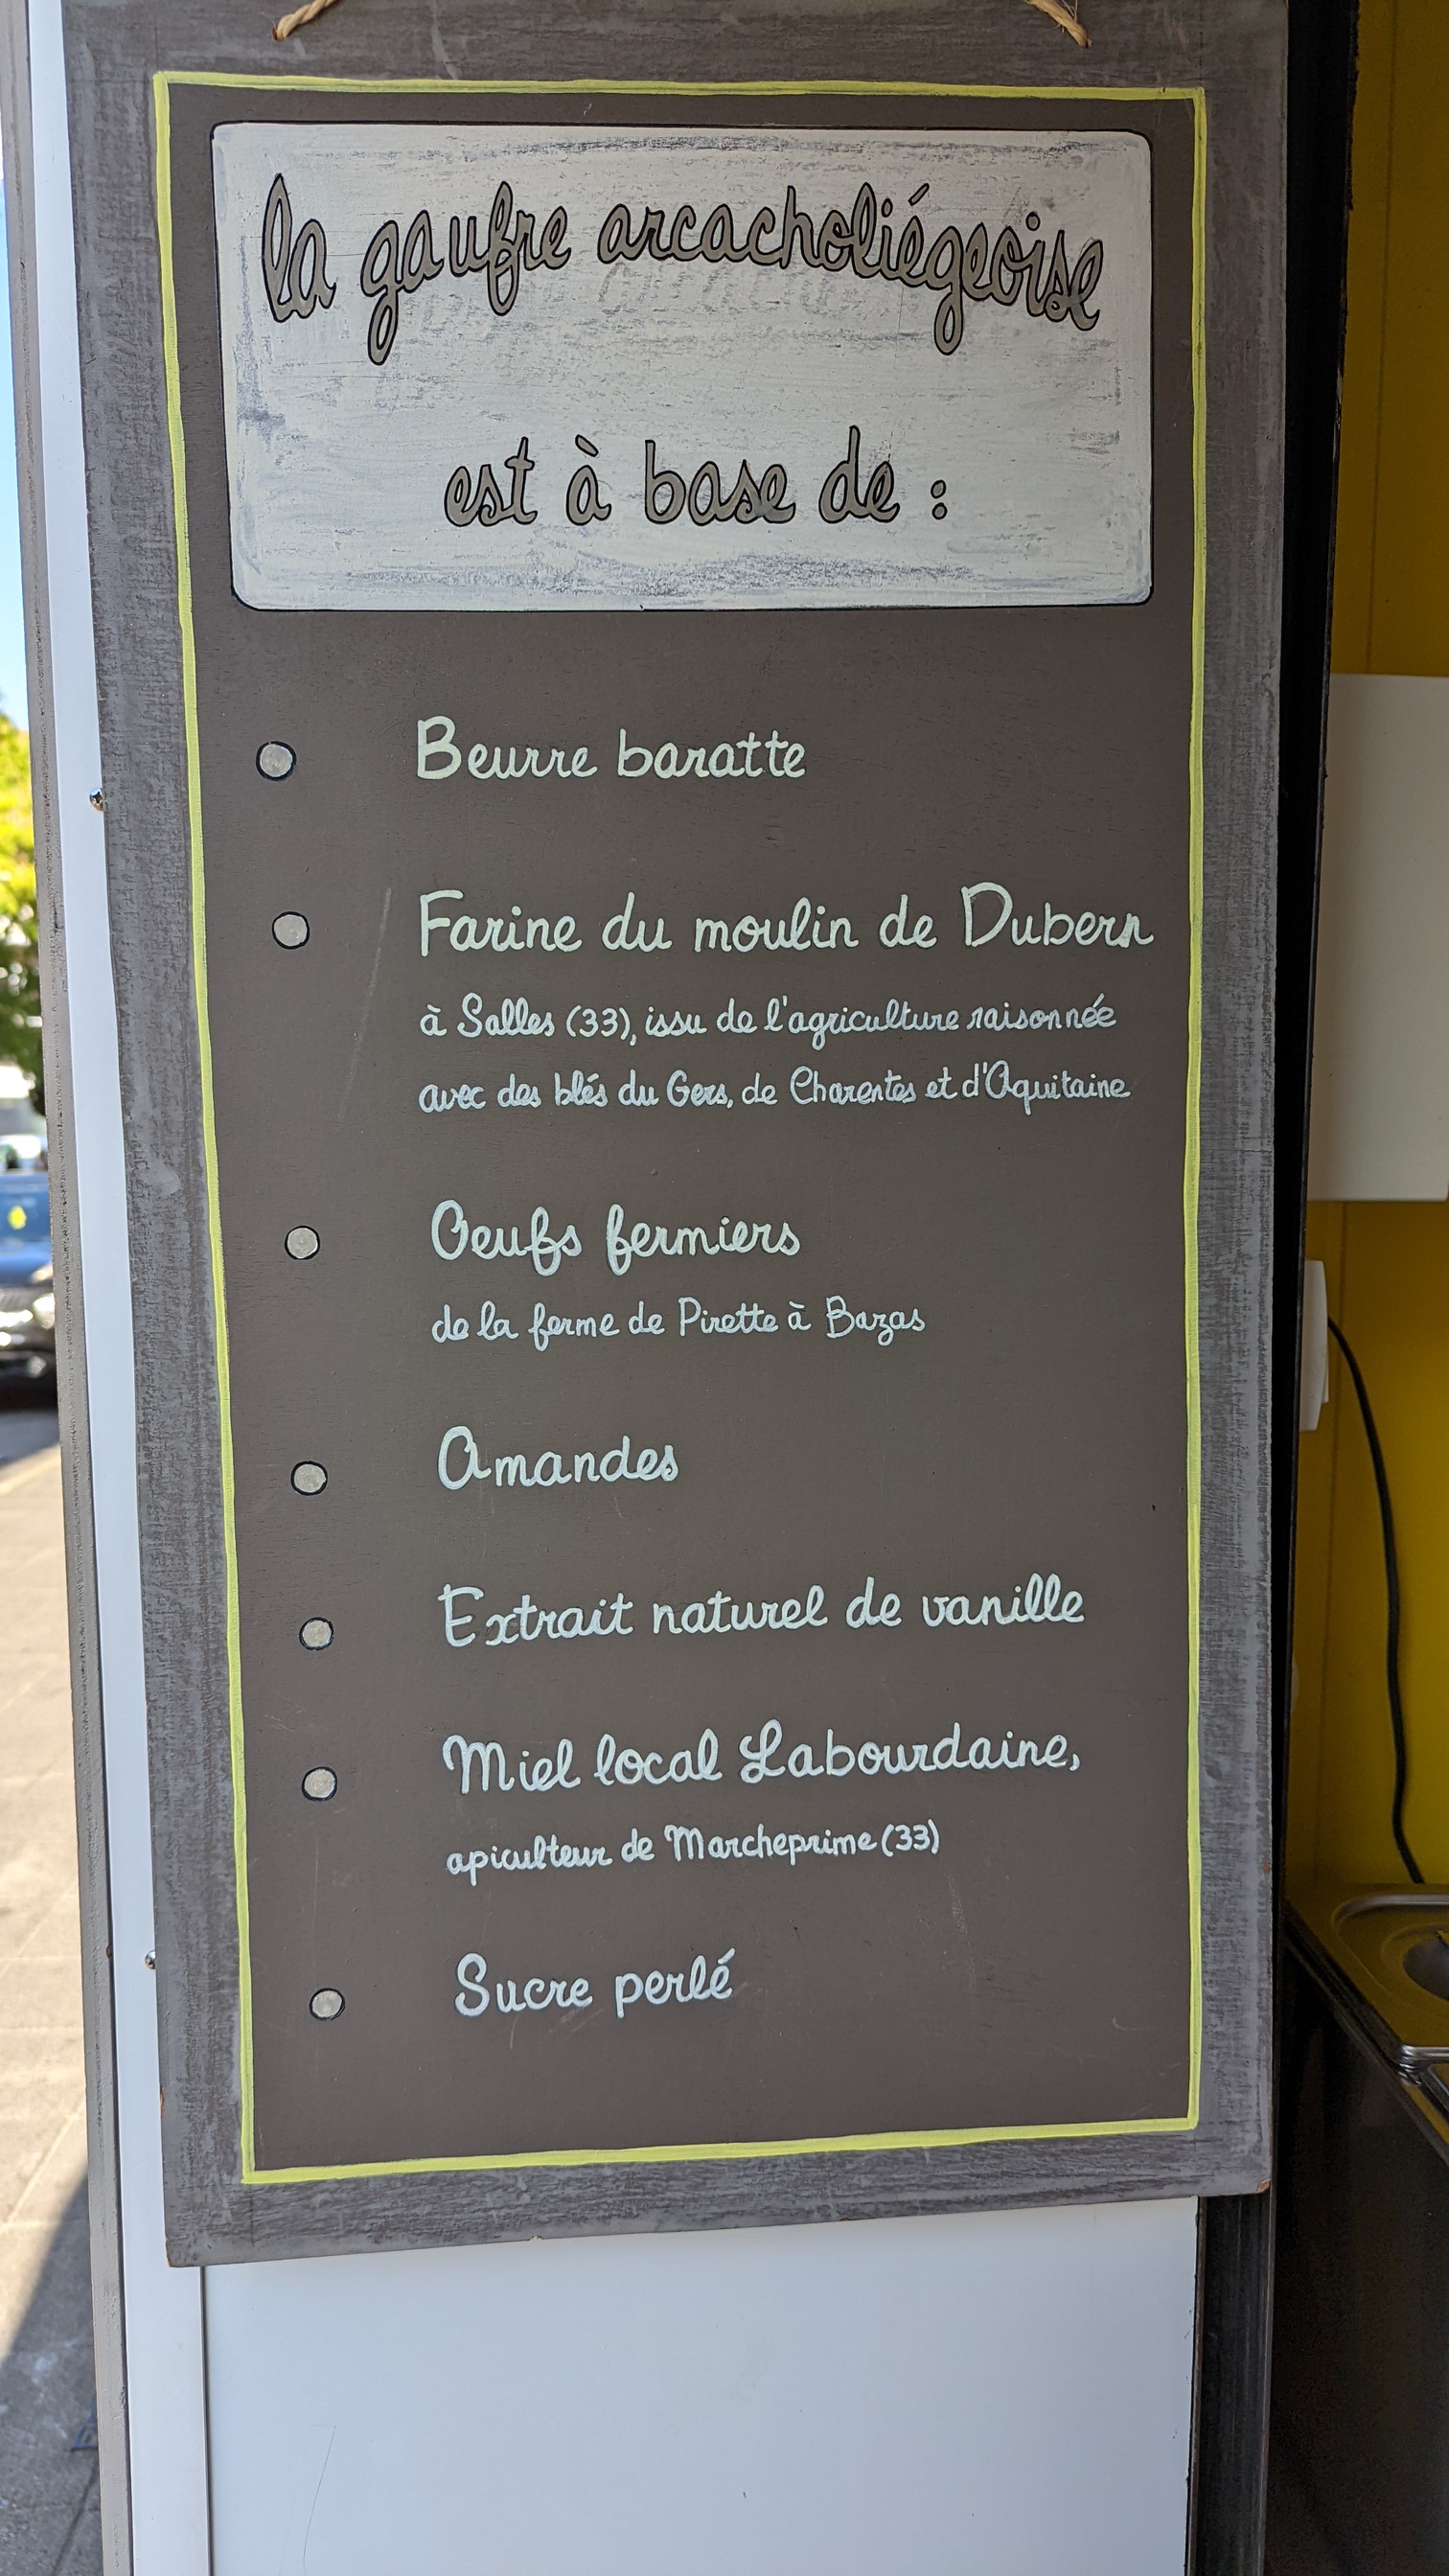 la gaufre arcacholiégeoise
est à base de :
Beurre baratte
Farine du moulin de Dubern
à Salles (33), issu de l'agriculture raisonnée
avec des blés du Gers, de Charentes et d'Aquitaine
Oeufs fermiers
de la ferme de Pirette à Bazas
Amandes
Extrait naturel de vanille
Miel local Labourdaine,
apiculteur de Marcheprime (33)
Sucre perlé